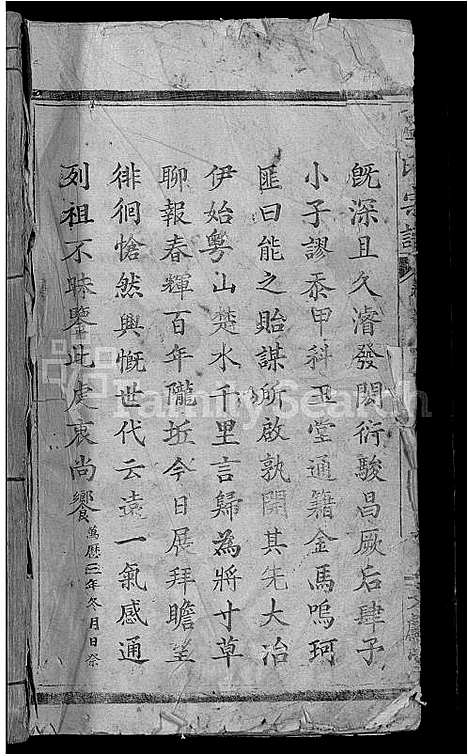 既深且久濬發閎衍駿昌厥后肆予
小子謬忝甲科玉堂通籍金馬鳴珂
匪曰能之貽謀所啟孰開其先大冶
伊始粵山楚水千里言歸為將寸草
聊報春輝百年隴坵今日展拜瞻望
徘徊愴然興慨世代云遠一氣感通
列祖不昧鑒此虔衷尚饗萬歷三年冬月日祭
氏宗譜
FamilySearch